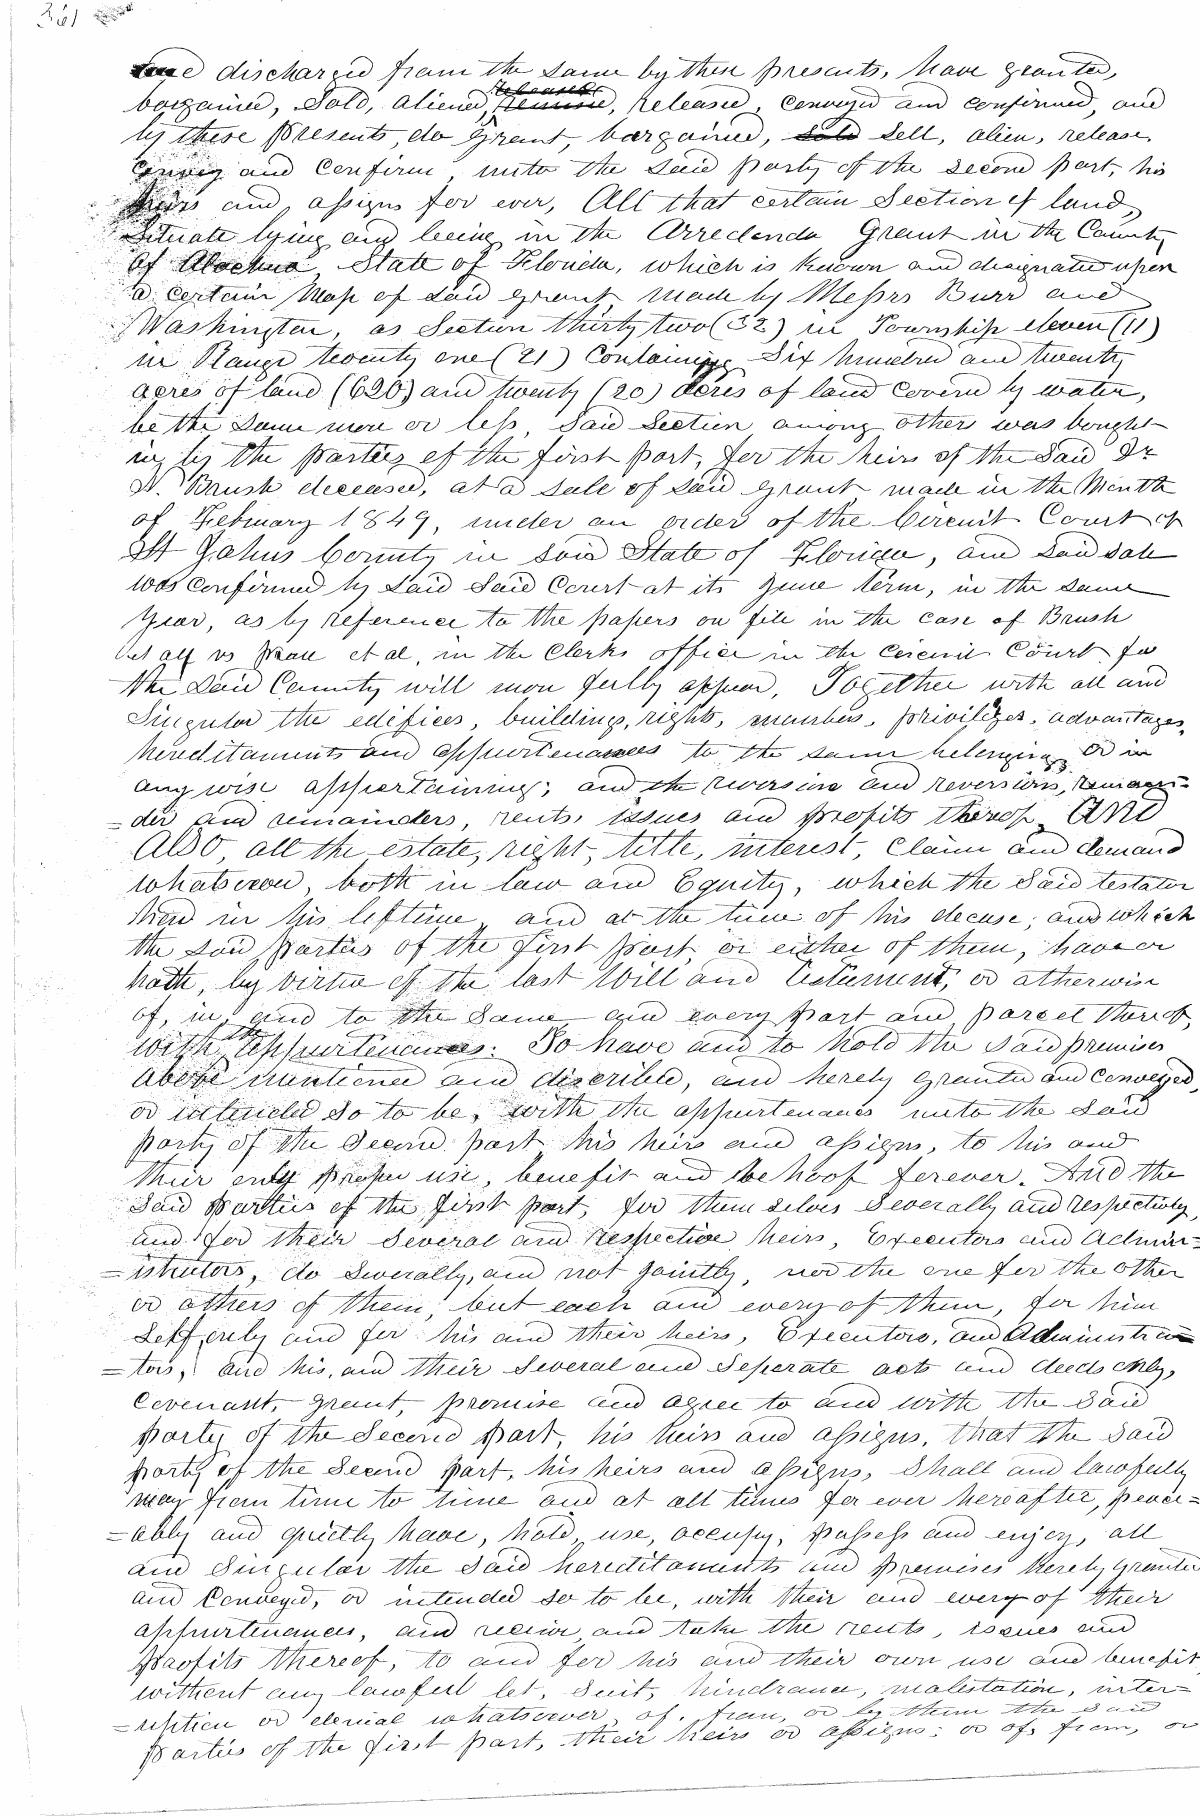 361
discharged from the same by these presents, have granted,
bargained, Sold, aliened, released, conveyed and confirmed, and
by these presents, do grant, bargained, sold sell, alien, release,
convey and confirm, unto the said party of the second part, his
heirs and assigns for ever, All that certain Section of land,
Situate lying and being in the Arredondo Grant in the County
of Alachua, State of Florida, which is known and designated upon
a certain Map of said grant made by Messrs Burr and
Washington, as Section thirty two (32) in Township eleven (11)
in Range twenty one (21) Containing Six hundred and twenty
acres of land (620) and twenty (20) acres of land Coverd by water,
be the same more or less, Said Section among other was bought
in by the parties of the first part, for the heirs of the Said Dr
N. Brush deceased, at a sale of said grant made in the Month
of February 1849, under an order of the Circuit Court of
St Johns County in said State of Florida, and said sale
was confirmed by Said Said Court at its June term, in the same
year, as by reference to the papers on file in the case of Brush
et al vs et al, in the Clerks office in the Circuit Court for
the Said County will more fully appear, Together with all and
Singular the edifices, buildings, rights, members, privileges, advantages,
hereditaments and appurtenances to the same belonging or in
any wise appertaining; and the reversion and reversions, remain=
=der and remainders, rents, issues and profits thereof. And
Also, all the estate, right, title, interest, Claim and demand
whatsoever, both in law and Equity, which the Said testator
had in his lifetime, and at the time of his decease, and which
the said parties of the first part, or either of them, have or
hath, by virtue of the last Will and Testament, or otherwise
of, in, and to the Same and every part and parcel thereof,
with the appurtenances. To have and to hold the Said premises
above mentioned and discribed, and hereby granted and Conveyed,
or intended so to be, with the appurtenances unto the Said
party of the Second part his heirs and assigns, to his and
their only proper use, benefit and behoof forever. And the
Said Parties of the first part, for themselves Severally and respectively,
and for their Several and respective heirs, Executors and Admin=
=istrators, do Severally, and not jointly, nor the one for the other
or others of them, but each and every of them, for him
Self only and for his and their heirs, Executors, and Administra=
=tors, and his, and their Several and Seperate acts and deeds only,
Covenant, grant, promise and agree to and with the Said
party of the Second part, his heirs and assigns, that the said
party of the Second part, his heirs and assigns, Shall and lawfully
may from time to time and at all times for ever hereafter, peace=
=ably and quietly have, hold, use, occupy, possess and enjoy, all
and Singular the Said hereditaments and premises hereby granted
and Conveyed, or intended so to be, with their and every of their
appurtenances, and receive and take the rents, issues and
profits thereof, to and for his and their own use and benefit,
without any lawfull let, Suit, hindrance, molestation, inter=
=ruption or denial whatsoever, of, from, or by them the Said
parties of the first part, their heirs or assigns; or of, from, or